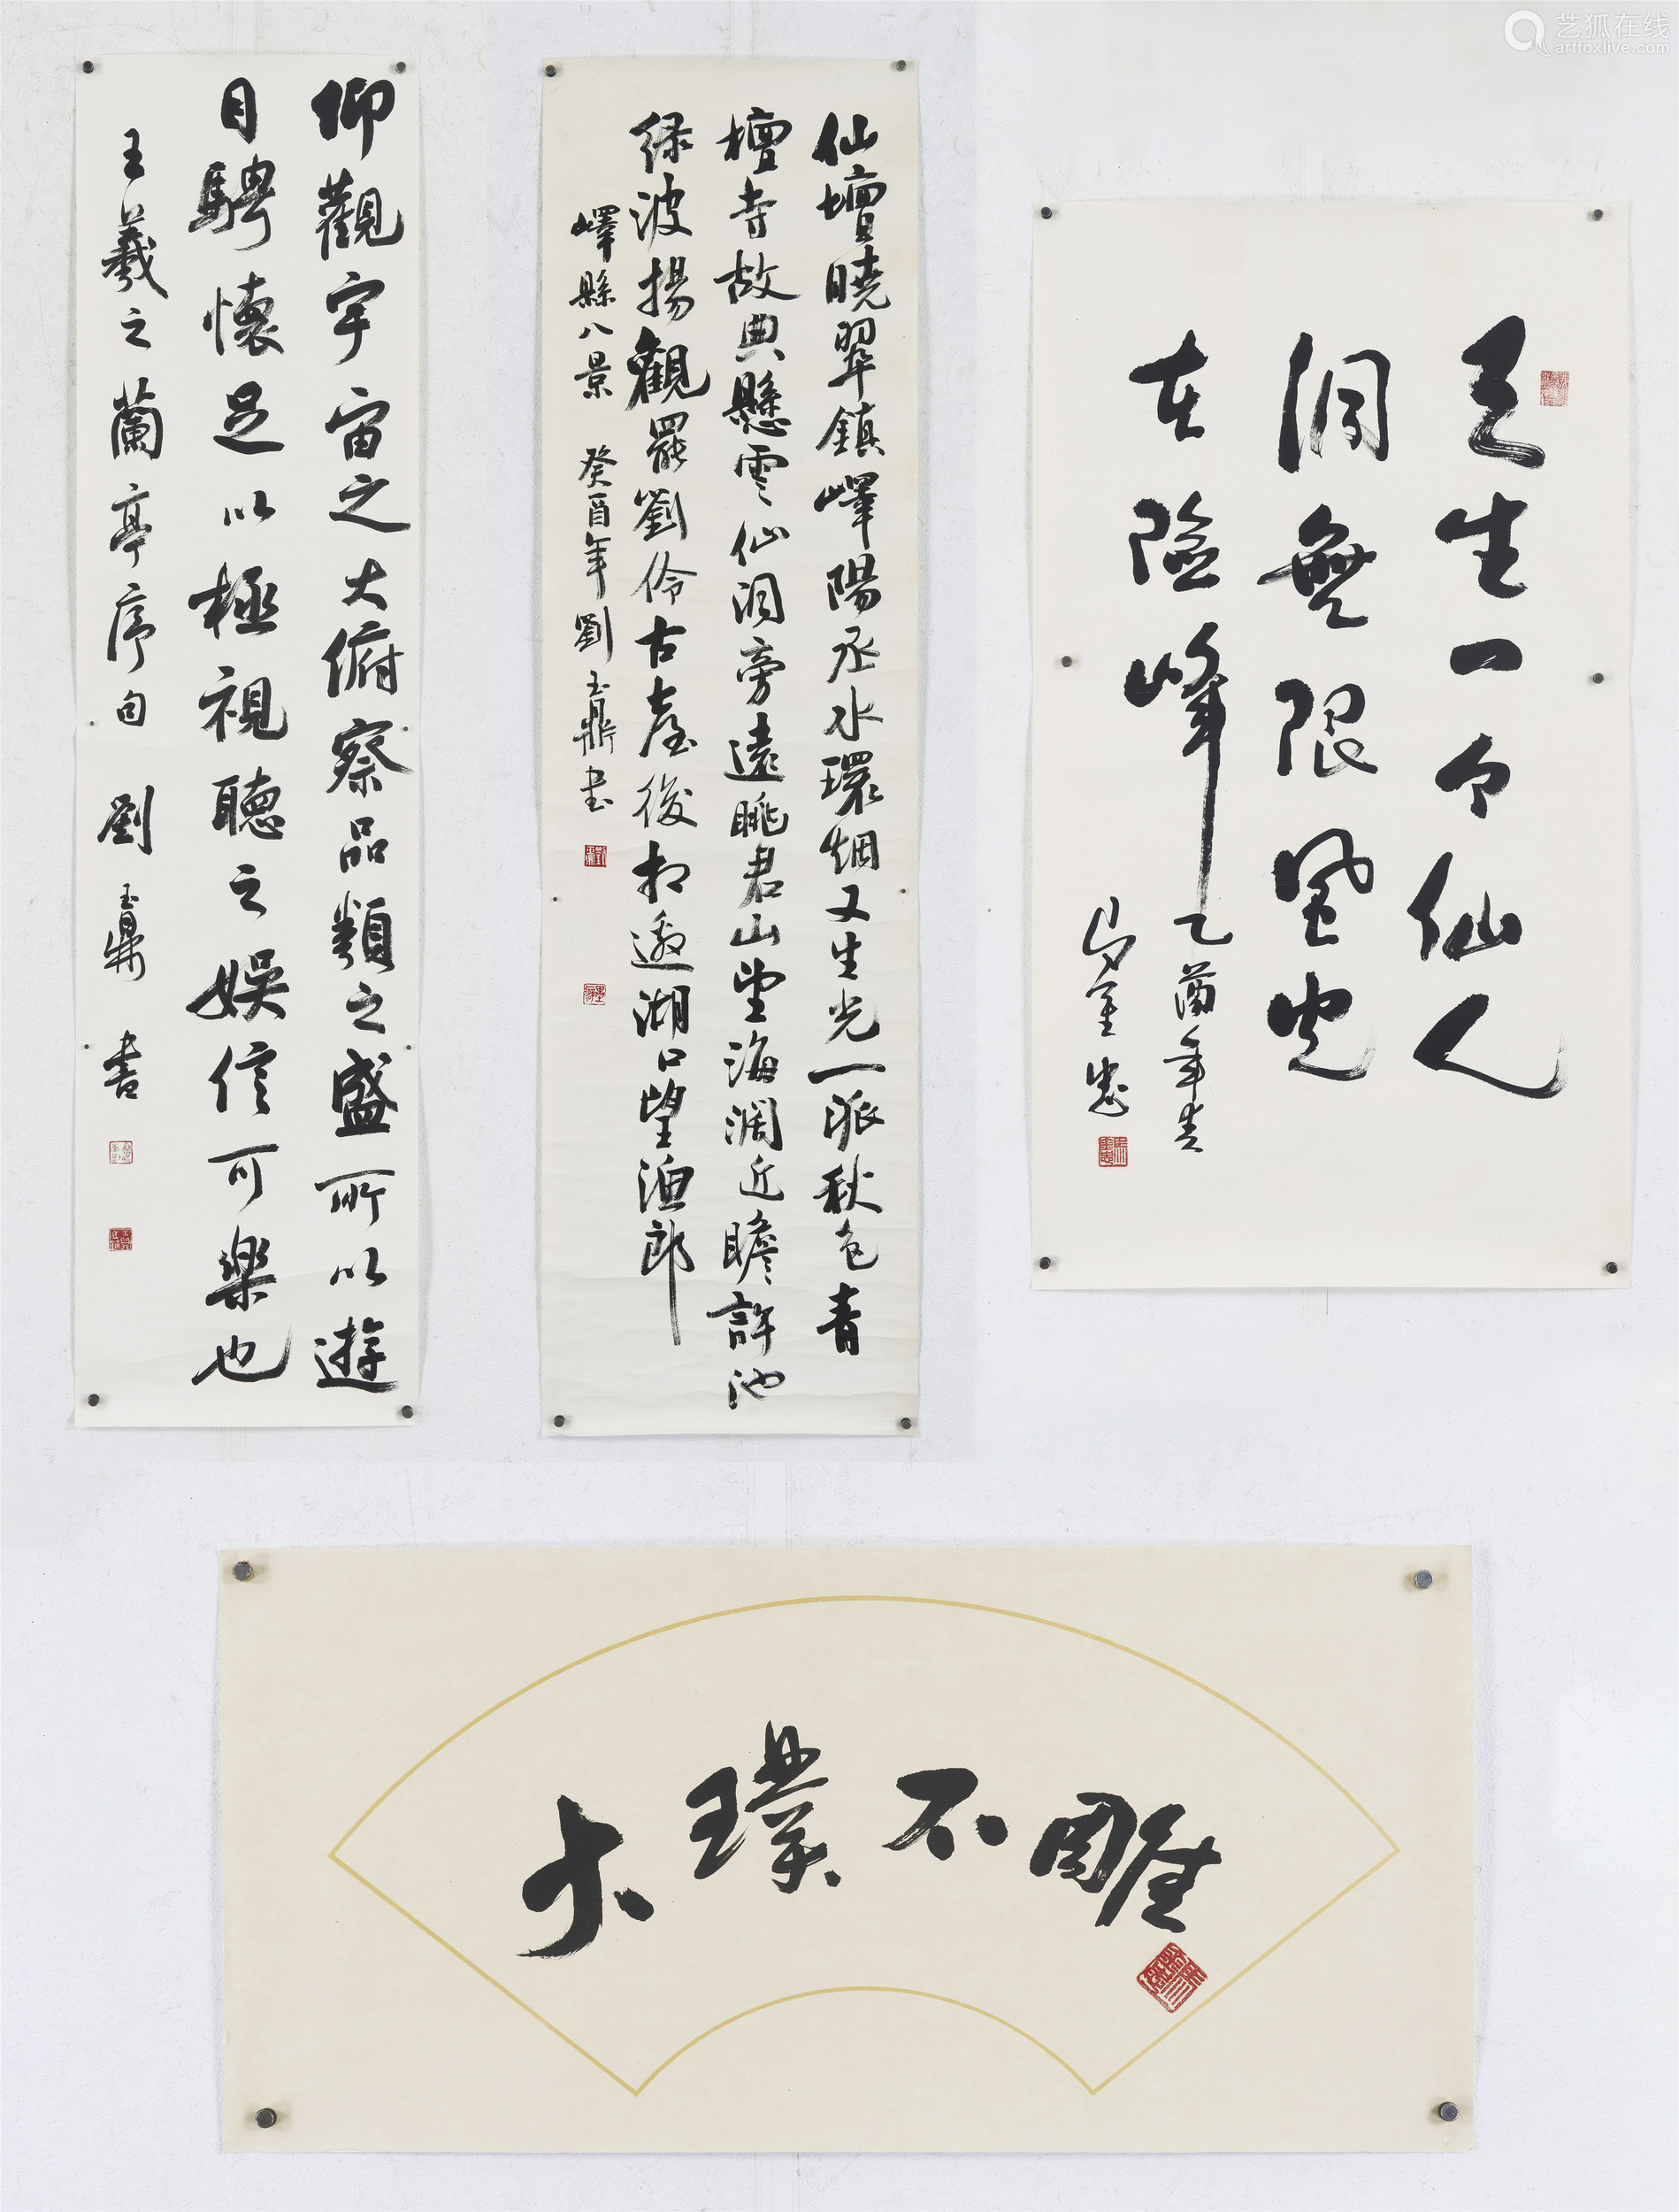 艺狐在线
artfoxlive.com
仰觀宇宙之大俯察品類之盛所以遊
目騁懷足以極視聽之娛信可樂也
王羲之蘭亭序句 劉玉鼎書
仙壇曉翠鎮嶧陽丞水環烟又生光一派秋色青
檀寺故典懸雲仙洞旁遠眺君山望海濶近瞻許池
绿波揚觀罷劉伶古臺後扣邀湖口望漁郎
嶧縣八景 癸酉年劉玉鼎书
天生一个仙人
洞無限風光
在险峰乙酉年书
大璞不雕